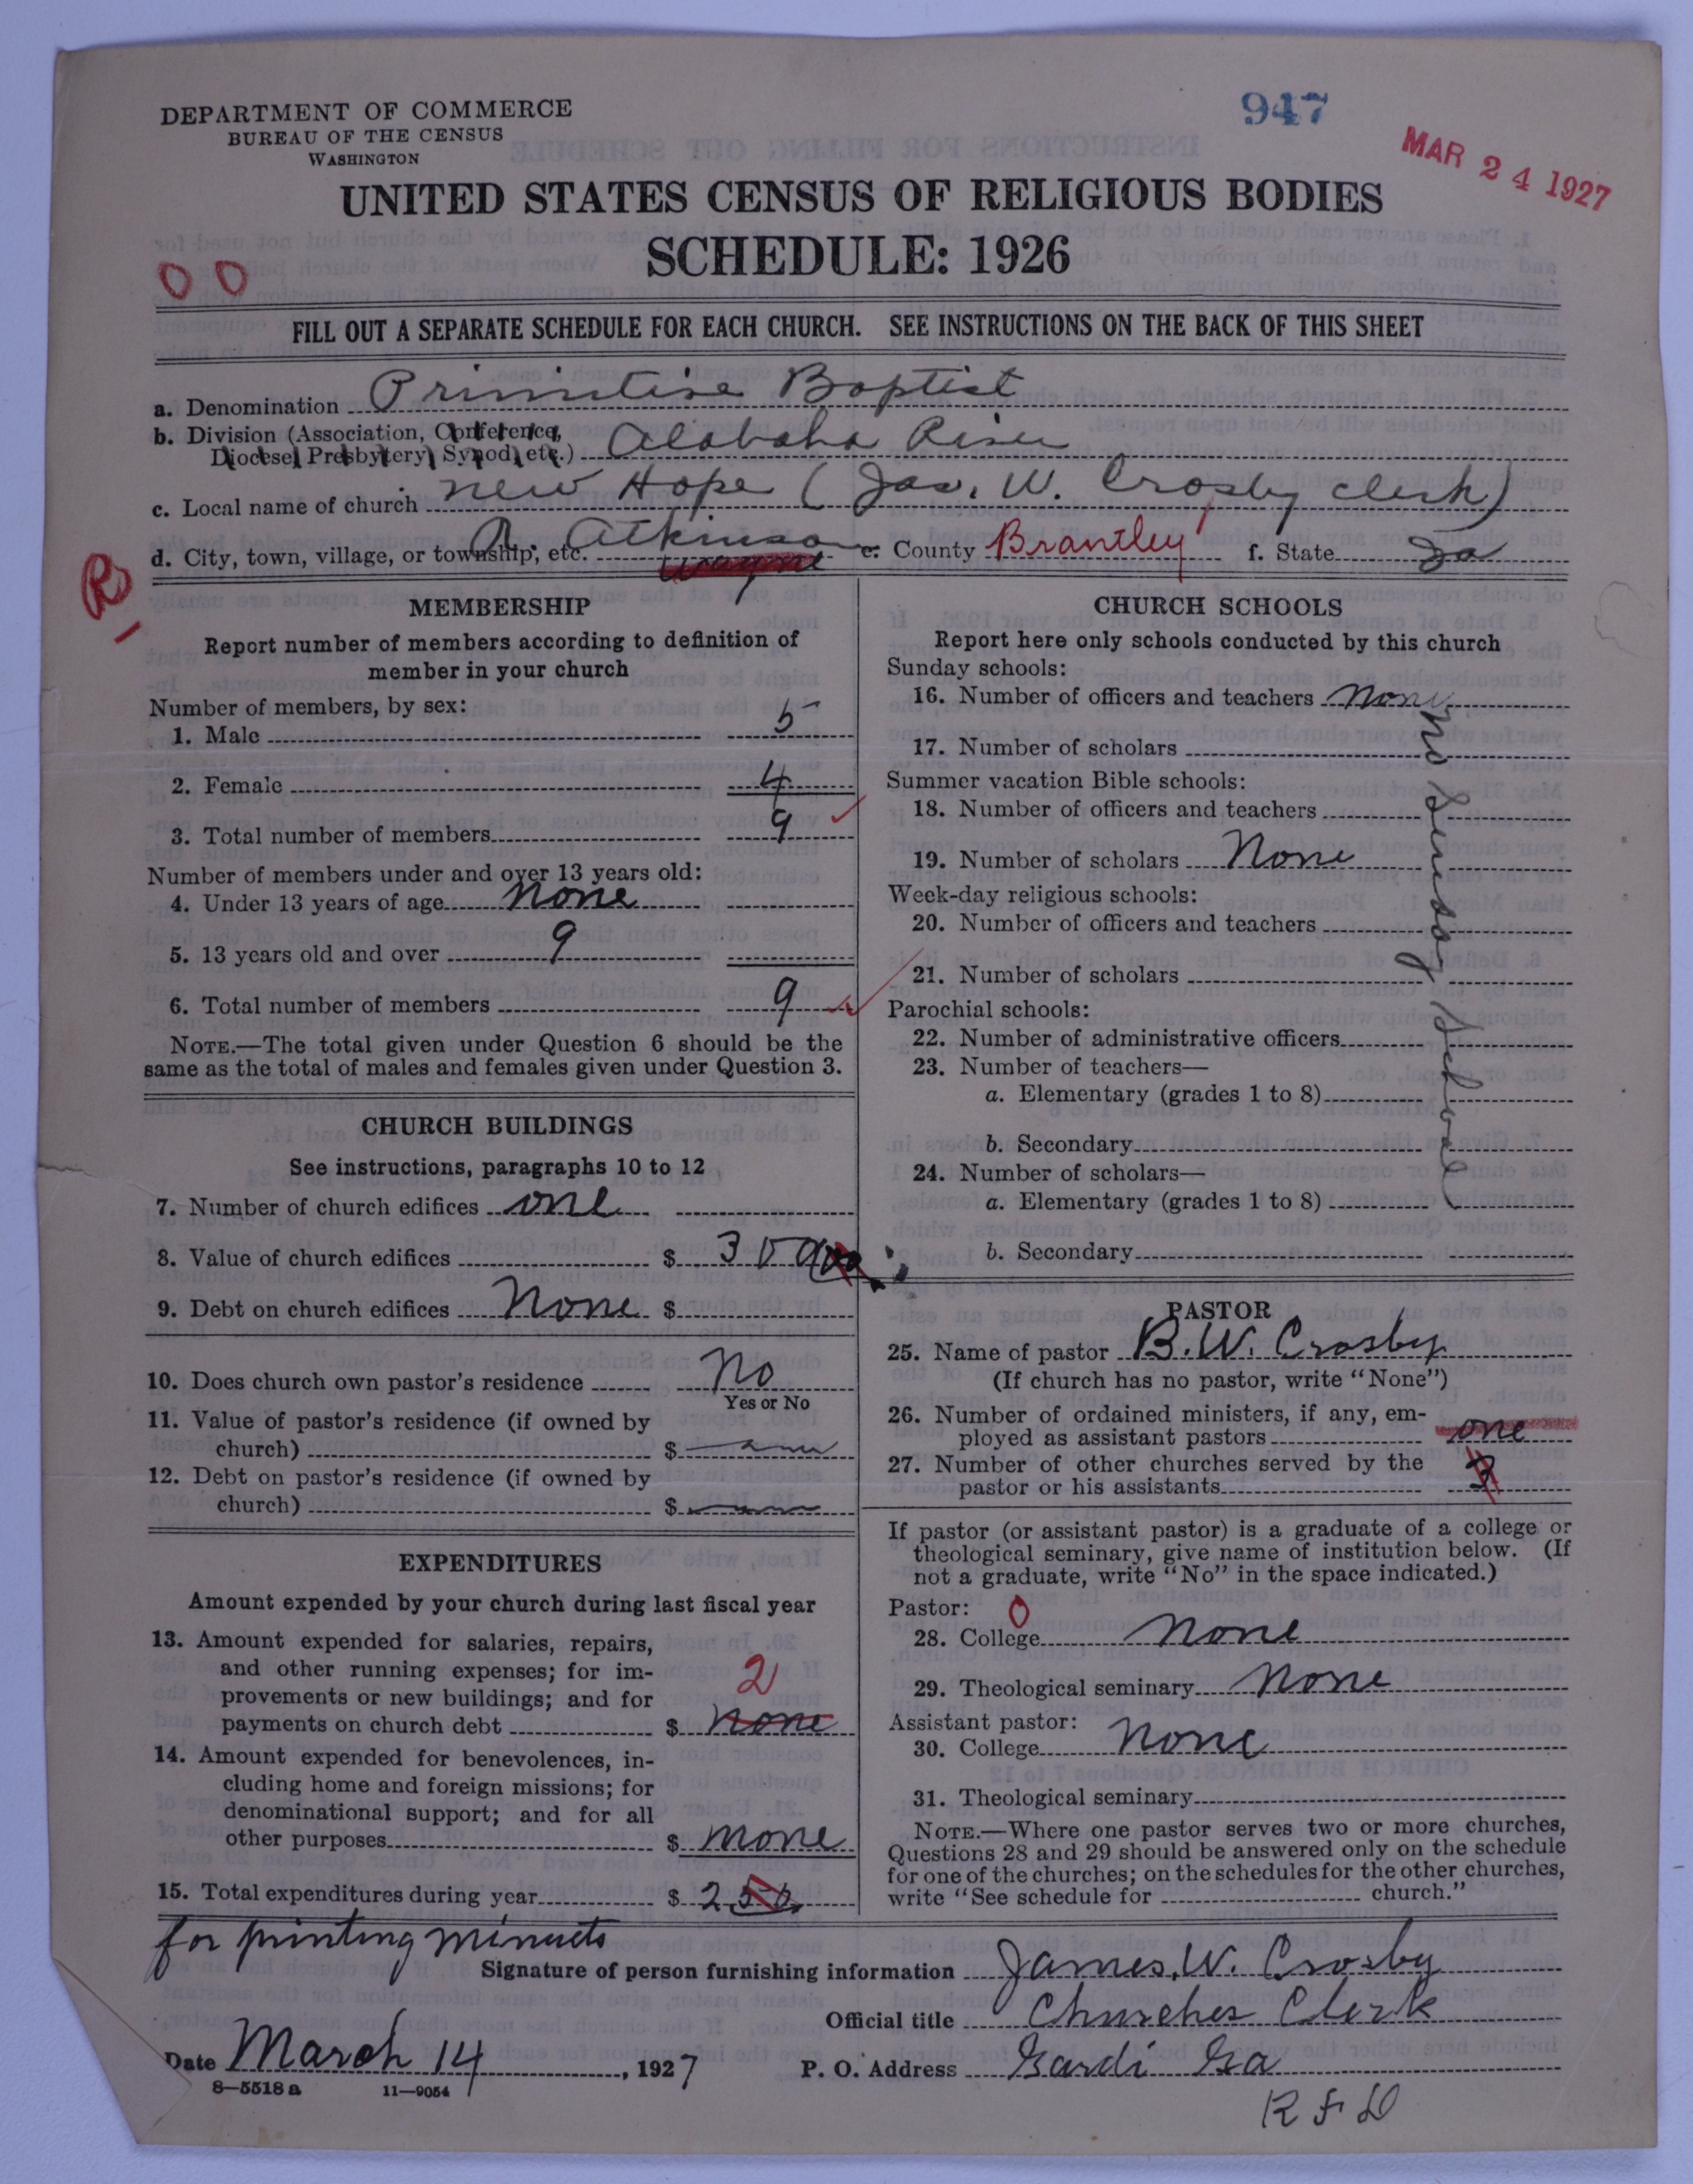 DEPARTMENT OF COMMERCE
BUREAU OF THE CENSUS
WASHINGTON
947
MAR 24 1927
UNITED STATES CENSUS OF RELIGIOUS BODIES
SCHEDULE: 1926
0 0
FILL OUT A SEPARATE SCHEDULE FOR EACH CHURCH. SEE INSTRUCTIONS ON THE BACK OF THIS SHEET
a. Denomination Primitive Baptist
b. Division (Association, Conference,
Diocese, Presbytery, Synod, etc.) Alabaha River
c. Local name of church new Hope (Jas. W. Crosby clerk)
d. City, town, village, or township, etc. R Atkinson e. County Brantley f. State Ga
wayne
R
MEMBERSHIP
Report number of members according to definition of
member in your church
Number of members, by sex:
1. Male 5
2. Female 4
3. Total number of members 9
Number of members under and over 13 years old:
4. Under 13 years of age none
5. 13 years old and over 9
6. Total number of members 9
NOTE.—The total given under Question 6 should be the
same as the total of males and females given under Question 3.
CHURCH BUILDINGS
See instructions, paragraphs 10 to 12
7. Number of church edifices one
8. Value of church edifices $
9. Debt on church edifices None $
10. Does church own pastor's residence No
Yes or No
11. Value of pastor's residence (if owned by
church) $
12. Debt on pastor's residence (if owned by
church) $
EXPENDITURES
Amount expended by your church during last fiscal year
13. Amount expended for salaries, repairs,
and other running expenses; for im-
provements or new buildings; and for
payments on church debt $ none
2
14. Amount expended for benevolences, in-
cluding home and foreign missions; for
denominational support; and for all
other purposes $ none
15. Total expenditures during year $ 2 50
for printing minuts
CHURCH SCHOOLS
Report here only schools conducted by this church
Sunday schools:
16. Number of officers and teachers none
17. Number of scholars
Summer vacation Bible schools:
18. Number of officers and teachers
19. Number of scholars None
Week-day religious schools:
20. Number of officers and teachers
21. Number of scholars
Parochial schools:
22. Number of administrative officers
23. Number of teachers—
a. Elementary (grades 1 to 8)
b. Secondary
24. Number of scholars—
a. Elementary (grades 1 to 8)
b. Secondary
no Sunday School
PASTOR
25. Name of pastor B. W. Crosby
(If church has no pastor, write "None")
26. Number of ordained ministers, if any, em-
ployed as assistant pastors one
27. Number of other churches served by the
pastor or his assistants 3
If pastor (or assistant pastor) is a graduate of a college or
theological seminary, give name of institution below. (If
not a graduate, write "No" in the space indicated.)
Pastor: 0
28. College none
29. Theological seminary None
Assistant pastor:
30. College None
31. Theological seminary
NOTE.—Where one pastor serves two or more churches,
Questions 28 and 29 should be answered only on the schedule
for one of the churches; on the schedules for the other churches,
write "See schedule for church."
Signature of person furnishing information James. W. Crosby
Official title Churches Clerk
Date March 14, 1927 P. O. Address Gardi Ga
R F D
8—5518 a 11—9054